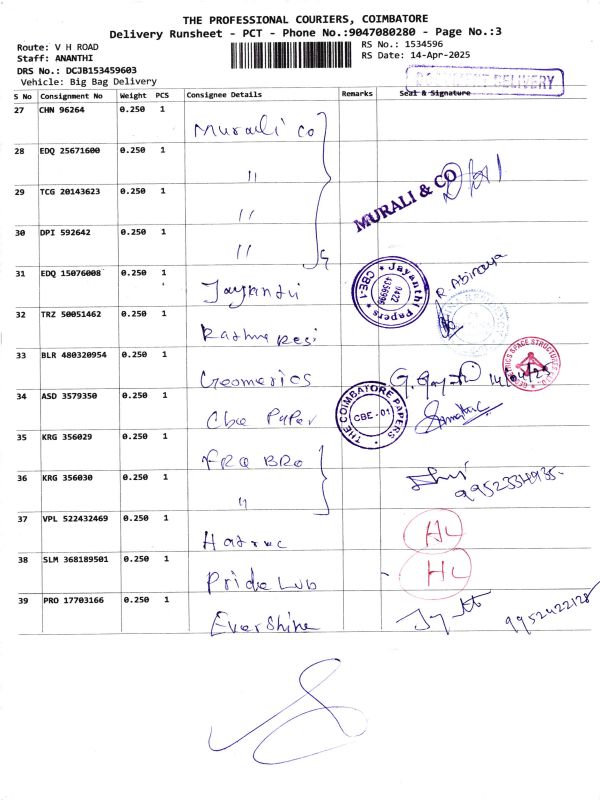 THE PROFESSIONAL COURIERS, COIMBATORE
Delivery Runsheet - PCT - Phone No.:9047080280 - Page No.:3
Route: V H ROAD
RS No.: 1534596
Staff: ANANTHI
RS Date: 14-Apr-2025
DRS No.: DCJB153459603
Vehicle: Big Bag Delivery
DOCUMENT DELIVERY
S No Consignment No Weight PCS Consignee Details Remarks Seal & Signature
27 CHN 96264 0.250 1 Murali co
28 EDQ 25671600 0.250 1 "
MURALI & CO
29 TCG 20143623 0.250 1 "
30 DPI 592642 0.250 1 "
31 EDQ 15076008 0.250 1 Jayanthi
Jayanthi Papers CBE-1 0422 4356996
R. Abinaya
32 TRZ 50051462 0.250 1
33 BLR 480320954 0.250 1 Geomerics
SPACE STRUCTURES
34 ASD 3579350 0.250 1 Cbe Paper
THE COIMBATORE PAPERS CBE - 01
35 KRG 356029 0.250 1 BRO
36 KRG 356030 0.250 1 "
37 VPL 522432469 0.250 1
38 SLM 368189501 0.250 1 Pride Lub
39 PRO 17703166 0.250 1 EverShine
9952422128